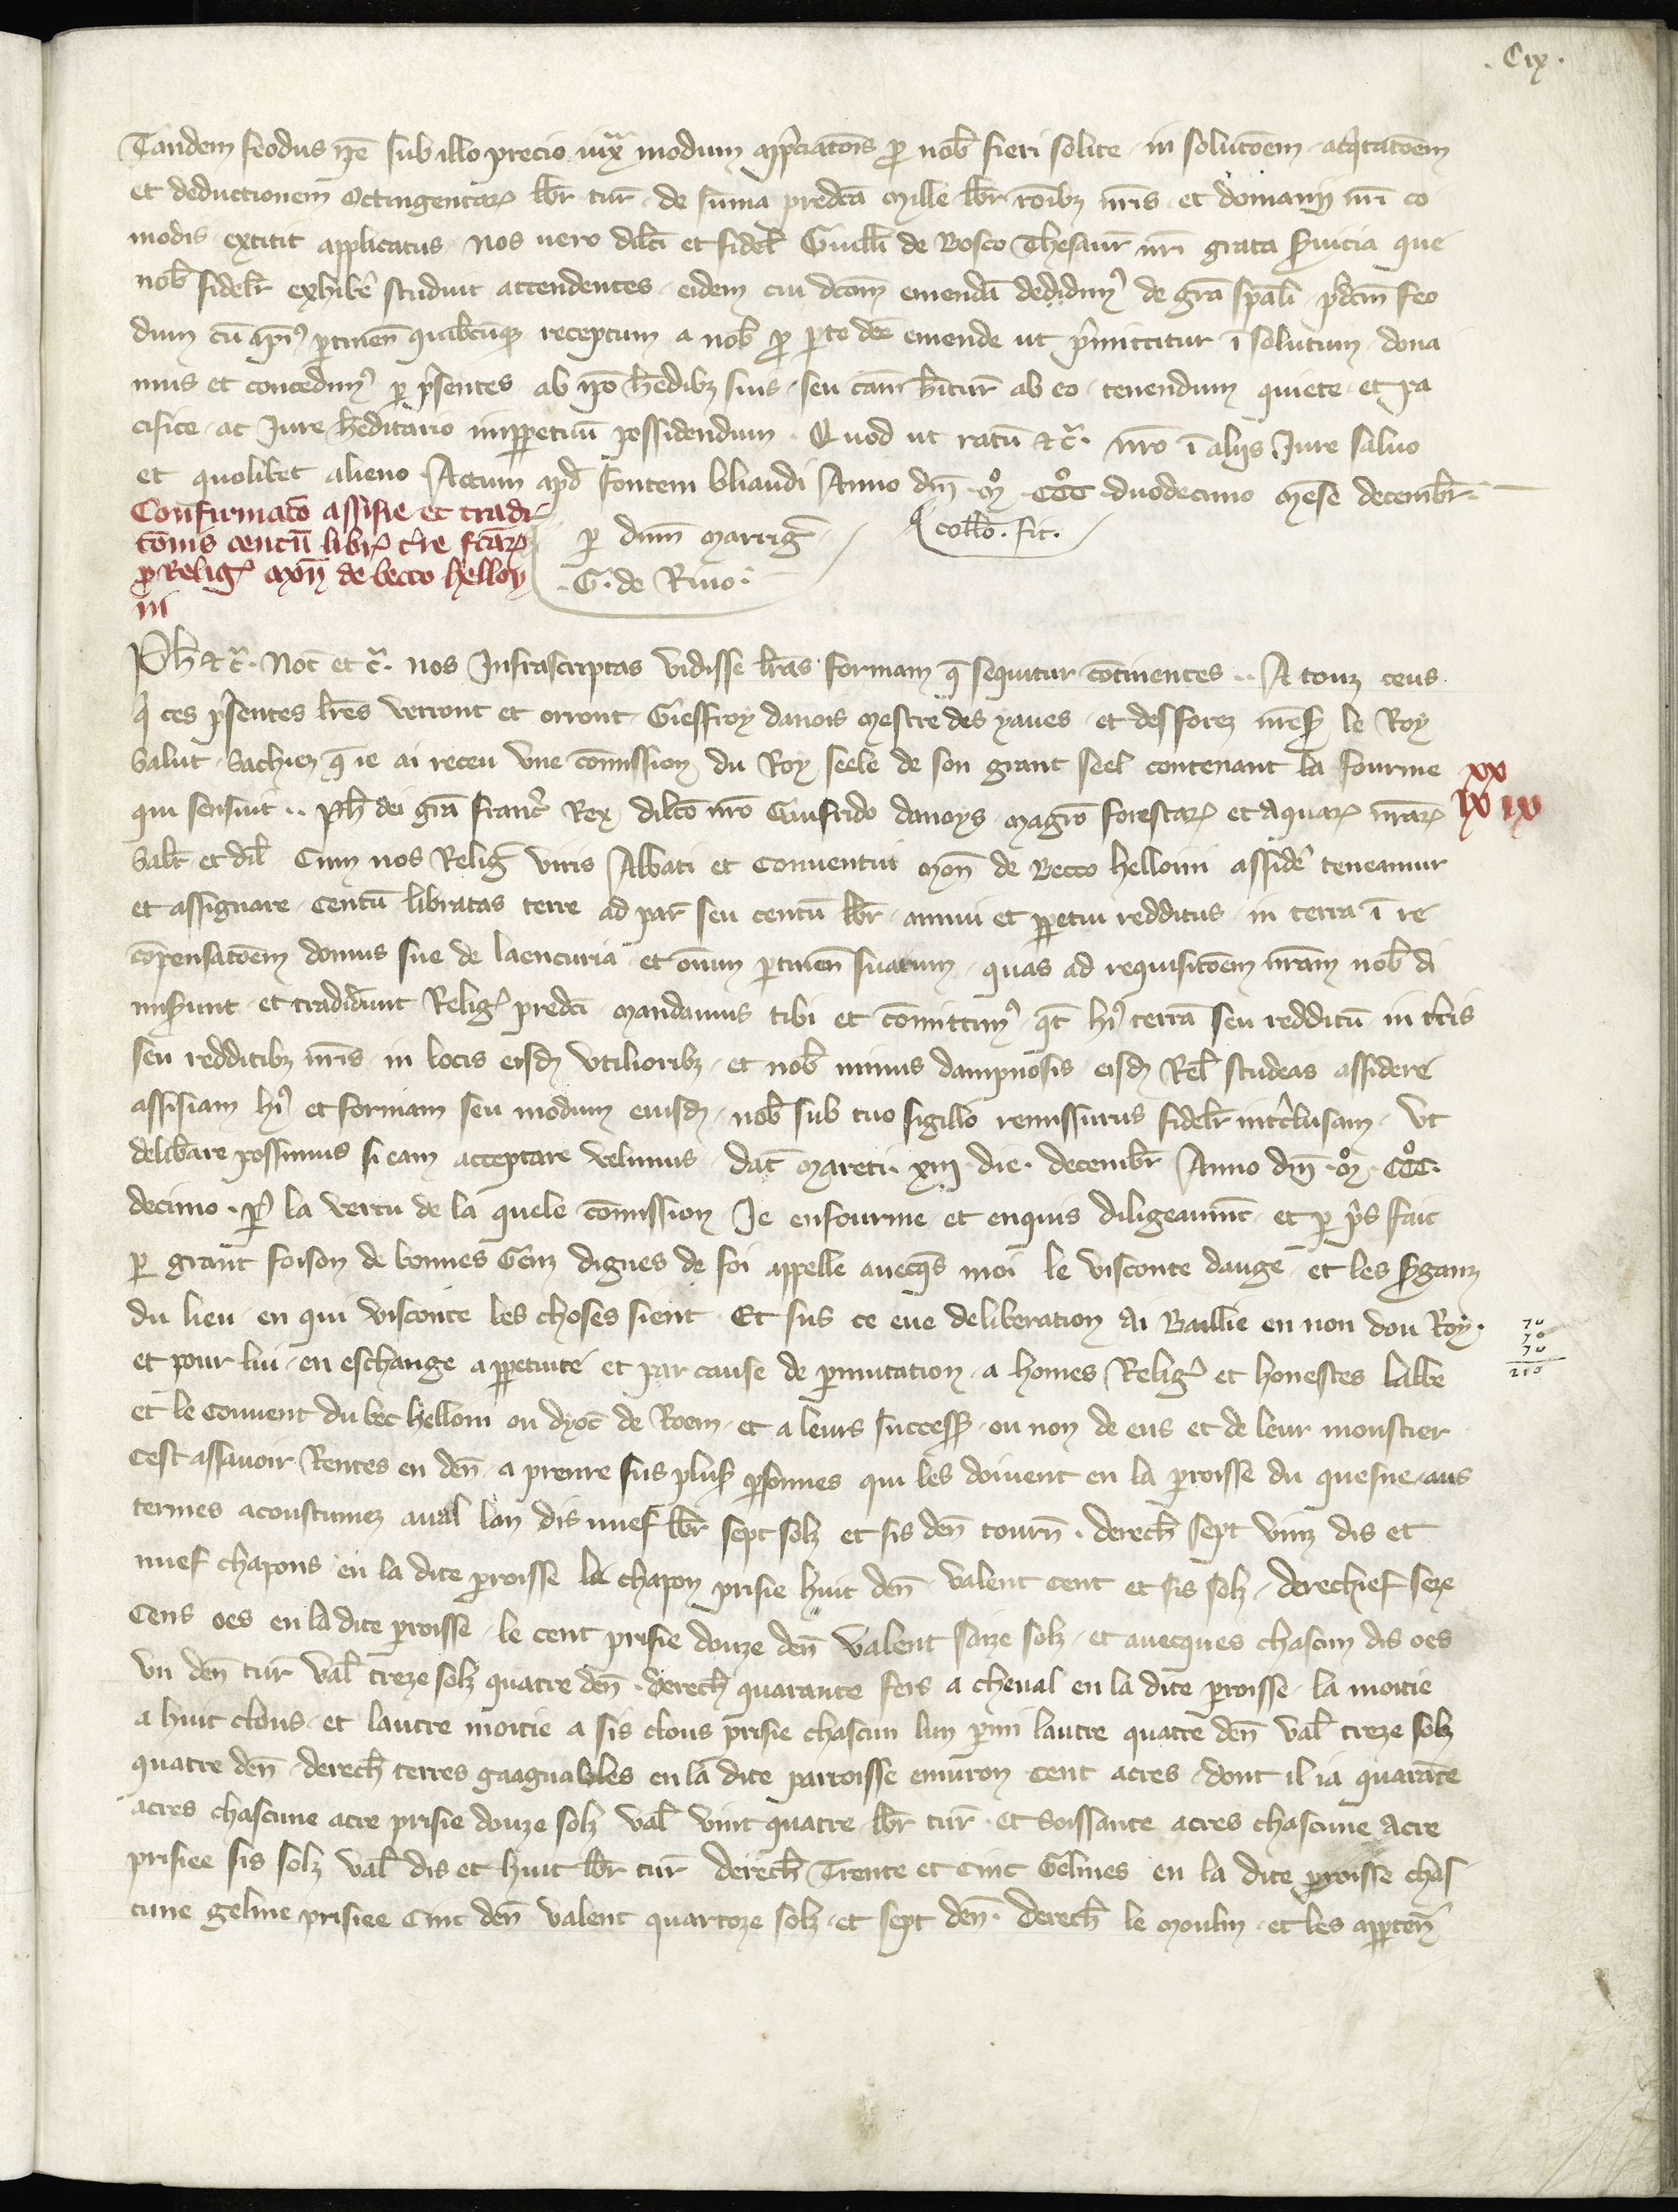 . Cix .
Tandem feodus ip̄e sub illo precio iux̄ modum app̄ciatōis per nob̄ fieri solite in solutōem acq̄tatōem
et deductionem octingentarꝝ libr̄ tur̄ de sūma predc̄a mille libr̄ rōībꝫ nr̄is et domanij nr̄i co
modis extitit applicatus nos uero dilc̄i et fidel̄ Guill̄i de Bosco Thesaur̄ nr̄i grata s̄uicia que
nob̄ fidelr̄ exhibē studuit attendentes eidem cui dc̄am emendā dedidim᾿ de gr̄a spāli p̄dc̄m feo
dum cū ip̄i᾿ p̄tineñ quibꝯcūqꝫ receptum a nob̄ pro parte dc̄e emende ut p̄mittitur ī solutum dona
mus et concedim᾿ per p̄sentes ab ip̄o h̄edibꝫ suis seu cam̄ h̄itur̄ ab eo tenendum quiete et pa
cifice ac Iure h̄editario imꝑpetuū possidendum . Quod ut ratū &c̄. nr̄o ī alijs Iure saluo
et quolibet alieno Actum apd̄ fontem bliaudi Anno dn̄i .mͦ. cccͦ. duodecimo mēse decembr̄.
Confirmatō assisie et tradi
tōnis centū librꝝ t̄re fc̄arꝝ
pro Relig᾿ moñ de becco helloy
ni
per dn̄m marrig̃
. G. de Riuo.
Coll̄o. fit.
Ph̄ &c̄. Not̄ et c̄. nos Infrascriptas vidisse lr̄as formam q̄ sequitur cōtinentes .. A touz ceus
q̄ ces p̄sentes lr̄es verront et orront Gieffroy danois mestre des yaues et des forez mēs̄ le Roy
salut Sachiez q̄ ie ai receu vne cōmission du Roy seele de son grant seel contenant la fourme
xx
lx ix
qui sensuit .. Ph̄ dei gr̄a franc̄ Rex dilc̄o nr̄o Guifrido danoys magr̄o forestarꝝ et Aquarꝝ nr̄arꝝ
salt̄ et dil̄ Cum nos Relig̃ viris Abbati et Conuentui moñ de Becco helloini assidē teneamur
et assignare centū libratas terre ad par̄ seu centū libr̄ annui et ꝑpetui redditus in terra ī re
cōpensatōem domus sue de laencuria et ōnium p̄tineñ suarum quas ad requisitōem nr̄am nob̄ di
mis̄unt et tradid̄unt Relig᾿ predc̄i mandamus tibi et cōmittim᾿ qt̄ hi᾿ terrā seu redditū in t̄ris
seu redditibꝫ nr̄is in locis eisdꝫ vtilioribꝫ et nob̄ minus dampnosis eisdꝫ Rel̄ studeas assidere
assisiam hi᾿ et formam seu modum eiusdꝫ nob̄ sub tuo sigillo remissurus fidelr̄ int̄clusam vt
delib̄are possimus si eam acceptare velimus dat̄ mareti. xiij die. decembr̄ Anno dn̄i .mͦ. cccͦ.
decimo . Par la vertu de la quele cōmission Ie enfourme et enquis diligeaumt̄ et par p̄s fait
par grant foison de bonnes Genz dignes de foi appelle auecq̄s moi le visconte dauge et les s̄ganz
du lieu en qui visconte les choses sient Et sus ce eue deliberation Ai Baillie en non dou Roy.
et pour lui en eschange a ꝑpetuite et par cause de ꝑmutation a homes Relig᾿ et honestes labbe
70
70
70
210
et le Conuent du bec helloin ou dyoc̄ de Roem et a leurs success̄ ou non de eus et de leur moustier
Cest assauoir Rentes en deñ a prenre sus plus̄ ꝑsonnes qui les doiuent en la ꝑroisse du quesne aus
termes acoustumez aual lan dis nuef libr̄ sept solz et sis deñ tourñ . derech̄ sept vinz dis et
nuef chapons en la dite ꝑroisse le chapon prisie huit deñ valent cent et sis solz derechief seze
Cens oes en ladite ꝑroisse le cent prisie douze deñ valent saize solz et auecques chascun dis oes
vn deñ tur̄ val̄ treze solz quatre deñ . derech̄ quarante fers a cheual en la dite ꝑroisse la moitie
a huit clous et lautre moitie a sis clous prisie chascun lun ꝑmi lautre quatre deñ val̄ treze solz
quatre deñ derech̄ terres gaagnables en la dite parroisse enuiron cent acres dont il ia quarāte
acres chascune acre prisie douze solz val̄ vint quatre libr̄ tur̄ et soissante acres chascune Acre
prisiee sis solz val̄ dis et huit libr̄ tur̄ derech̄ Trente et cinc Gelines en la dite ꝑroisse chas
cune geline prisiee cinc deñ valent quartoze solz et sept deñ. derech̄ le moulin et les apparteñ